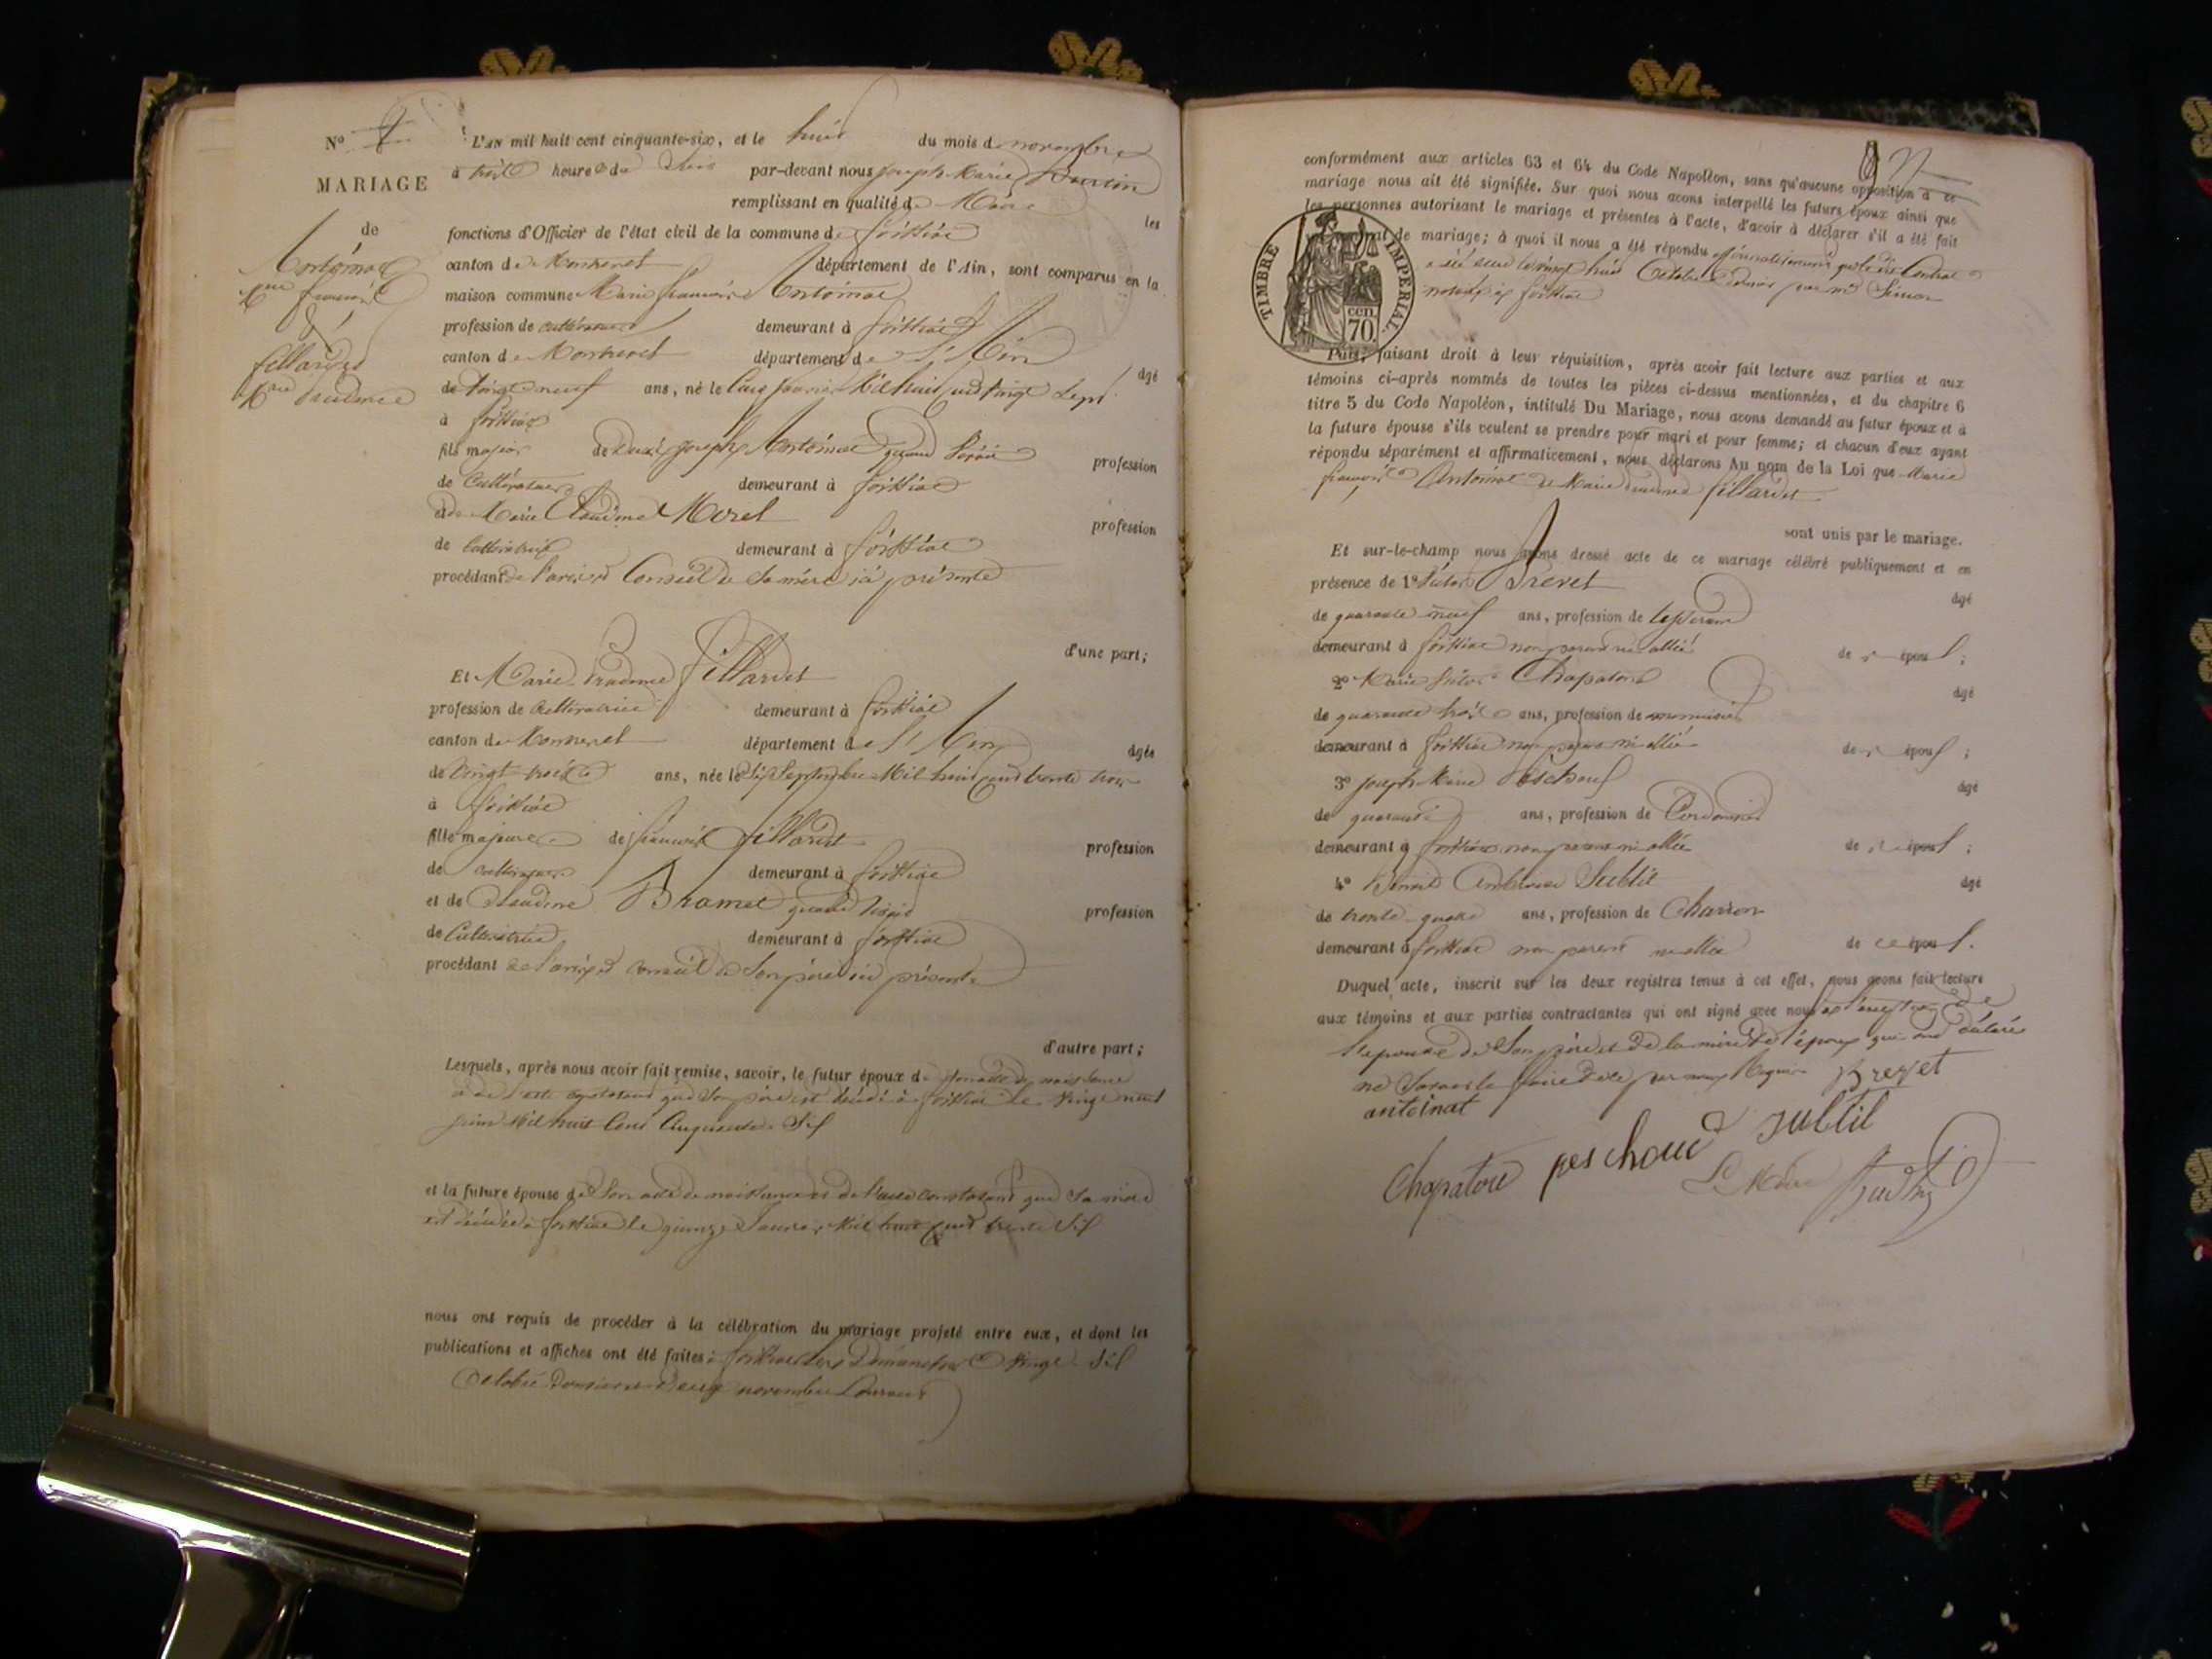 No
L'AN mil huit cent cinquante-six, et le huit du mois de novembre
MARIAGE
à trois heures du soir par-devant nous joseph Marie
remplissant en qualité de Maire les
de
fonctions d'Officier de l'état civil de la commune de foissiat
Antoinat
canton de Montrevel département de l'Ain, sont comparus en la
Mie françois
maison commune Marie françois Antoinat
&
profession de cultivateur demeurant à foissiat
fillardet
canton de Montrevel département de l'Ain âgé
Mie prudence
de vingt neuf ans, né le janvier Mil huit cent vingt sept
à foissiat
fils majeur de joseph Antoinat quand vivait profession
de cultivateur demeurant à foissiat
et de Marie Claudine Morel profession
de cultivatrice demeurant à foissiat
procédant de l'avis et Conseil de sa mère ici présente
d'une part;
Et Marie prudence fillardet
profession de cultivatrice demeurant à foissiat
canton de Montrevel département de l'Ain âgée
de vingt trois ans, née le Septembre Mil huit cent trente trois
à foissiat
fille majeure de françois fillardet profession
de cultivateur demeurant à foissiat
et de Claudine Bramet quand vivait profession
de Cultivatrice demeurant à foissiat
procédant de l'avis et conseil de son père ici présent
d'autre part;
Lesquels, après nous avoir fait remise, savoir, le futur époux de son acte de naissance
et de l'acte constatant que son père est décédé à foissiat le vingt neuf
juin Mil huit Cent Cinquante Six
et la future épouse de son acte de naissance et de l'acte constatant que sa mère
est décédée à foissiat le quinze Mil huit cent trente Six
nous ont requis de procéder à la célébration du mariage projeté entre eux, et dont les
publications et affiches ont été faites à foissiat les Dimanches vingt Six
Octobre dernier et deux novembre Courant
conformément aux articles 63 et 64 du Code Napoléon, sans qu'aucune opposition à ce
mariage nous ait été signifiée. Sur quoi nous avons interpellé les futurs époux ainsi que
les personnes autorisant le mariage et présentes à l'acte, d'avoir à déclarer s'il a été fait
de mariage; à quoi il nous a été répondu affirmativement qu'le dit Contrat
a été le vingt huit Octobre dernier par me
notaire à foissiat
TIMBRE IMPERIAL.
70 cen.
Puis, faisant droit à leur réquisition, après avoir fait lecture aux parties et aux
témoins ci-après nommés de toutes les pièces ci-dessus mentionnées, et du chapitre 6
titre 5 du Code Napoléon, intitulé Du Mariage, nous avons demandé au futur époux et à
la future épouse s'ils veulent se prendre pour mari et pour femme; et chacun d'eux ayant
répondu séparément et affirmativement, nous déclarons Au nom de la Loi que Marie
françois Antoinat et Marie prudence fillardet
sont unis par le mariage.
Et sur-le-champ nous avons dressé acte de ce mariage célébré publiquement et en
présence de 1º Victor Brevet âgé
de quarante neuf ans, profession de
demeurant à foissiat non parent ni allié des époux;
2º Marie Victor Chapatou âgé
de quarante trois ans, profession de menuisier
demeurant à foissiat non parent ni allié des époux;
3º joseph Marie Peschoux âgé
de quarante ans, profession de Cordonnier
demeurant à foissiat non parent ni allié des époux;
4º Benoit Ambroise Subtil âgé
de trente quatre ans, profession de Charron
demeurant à foissiat non parent ni allié des époux.
Duquel acte, inscrit sur les deux registres tenus à cet effet, nous avons fait lecture
aux témoins et aux parties contractantes qui ont signé avec nous à l'exception de
l'épouse de son père et de la mère de l'époux qui ont déclaré
ne savoir le faire de ce par nous requis Brevet
antoinat
subtil
Chapatou peschoux
Le Maire